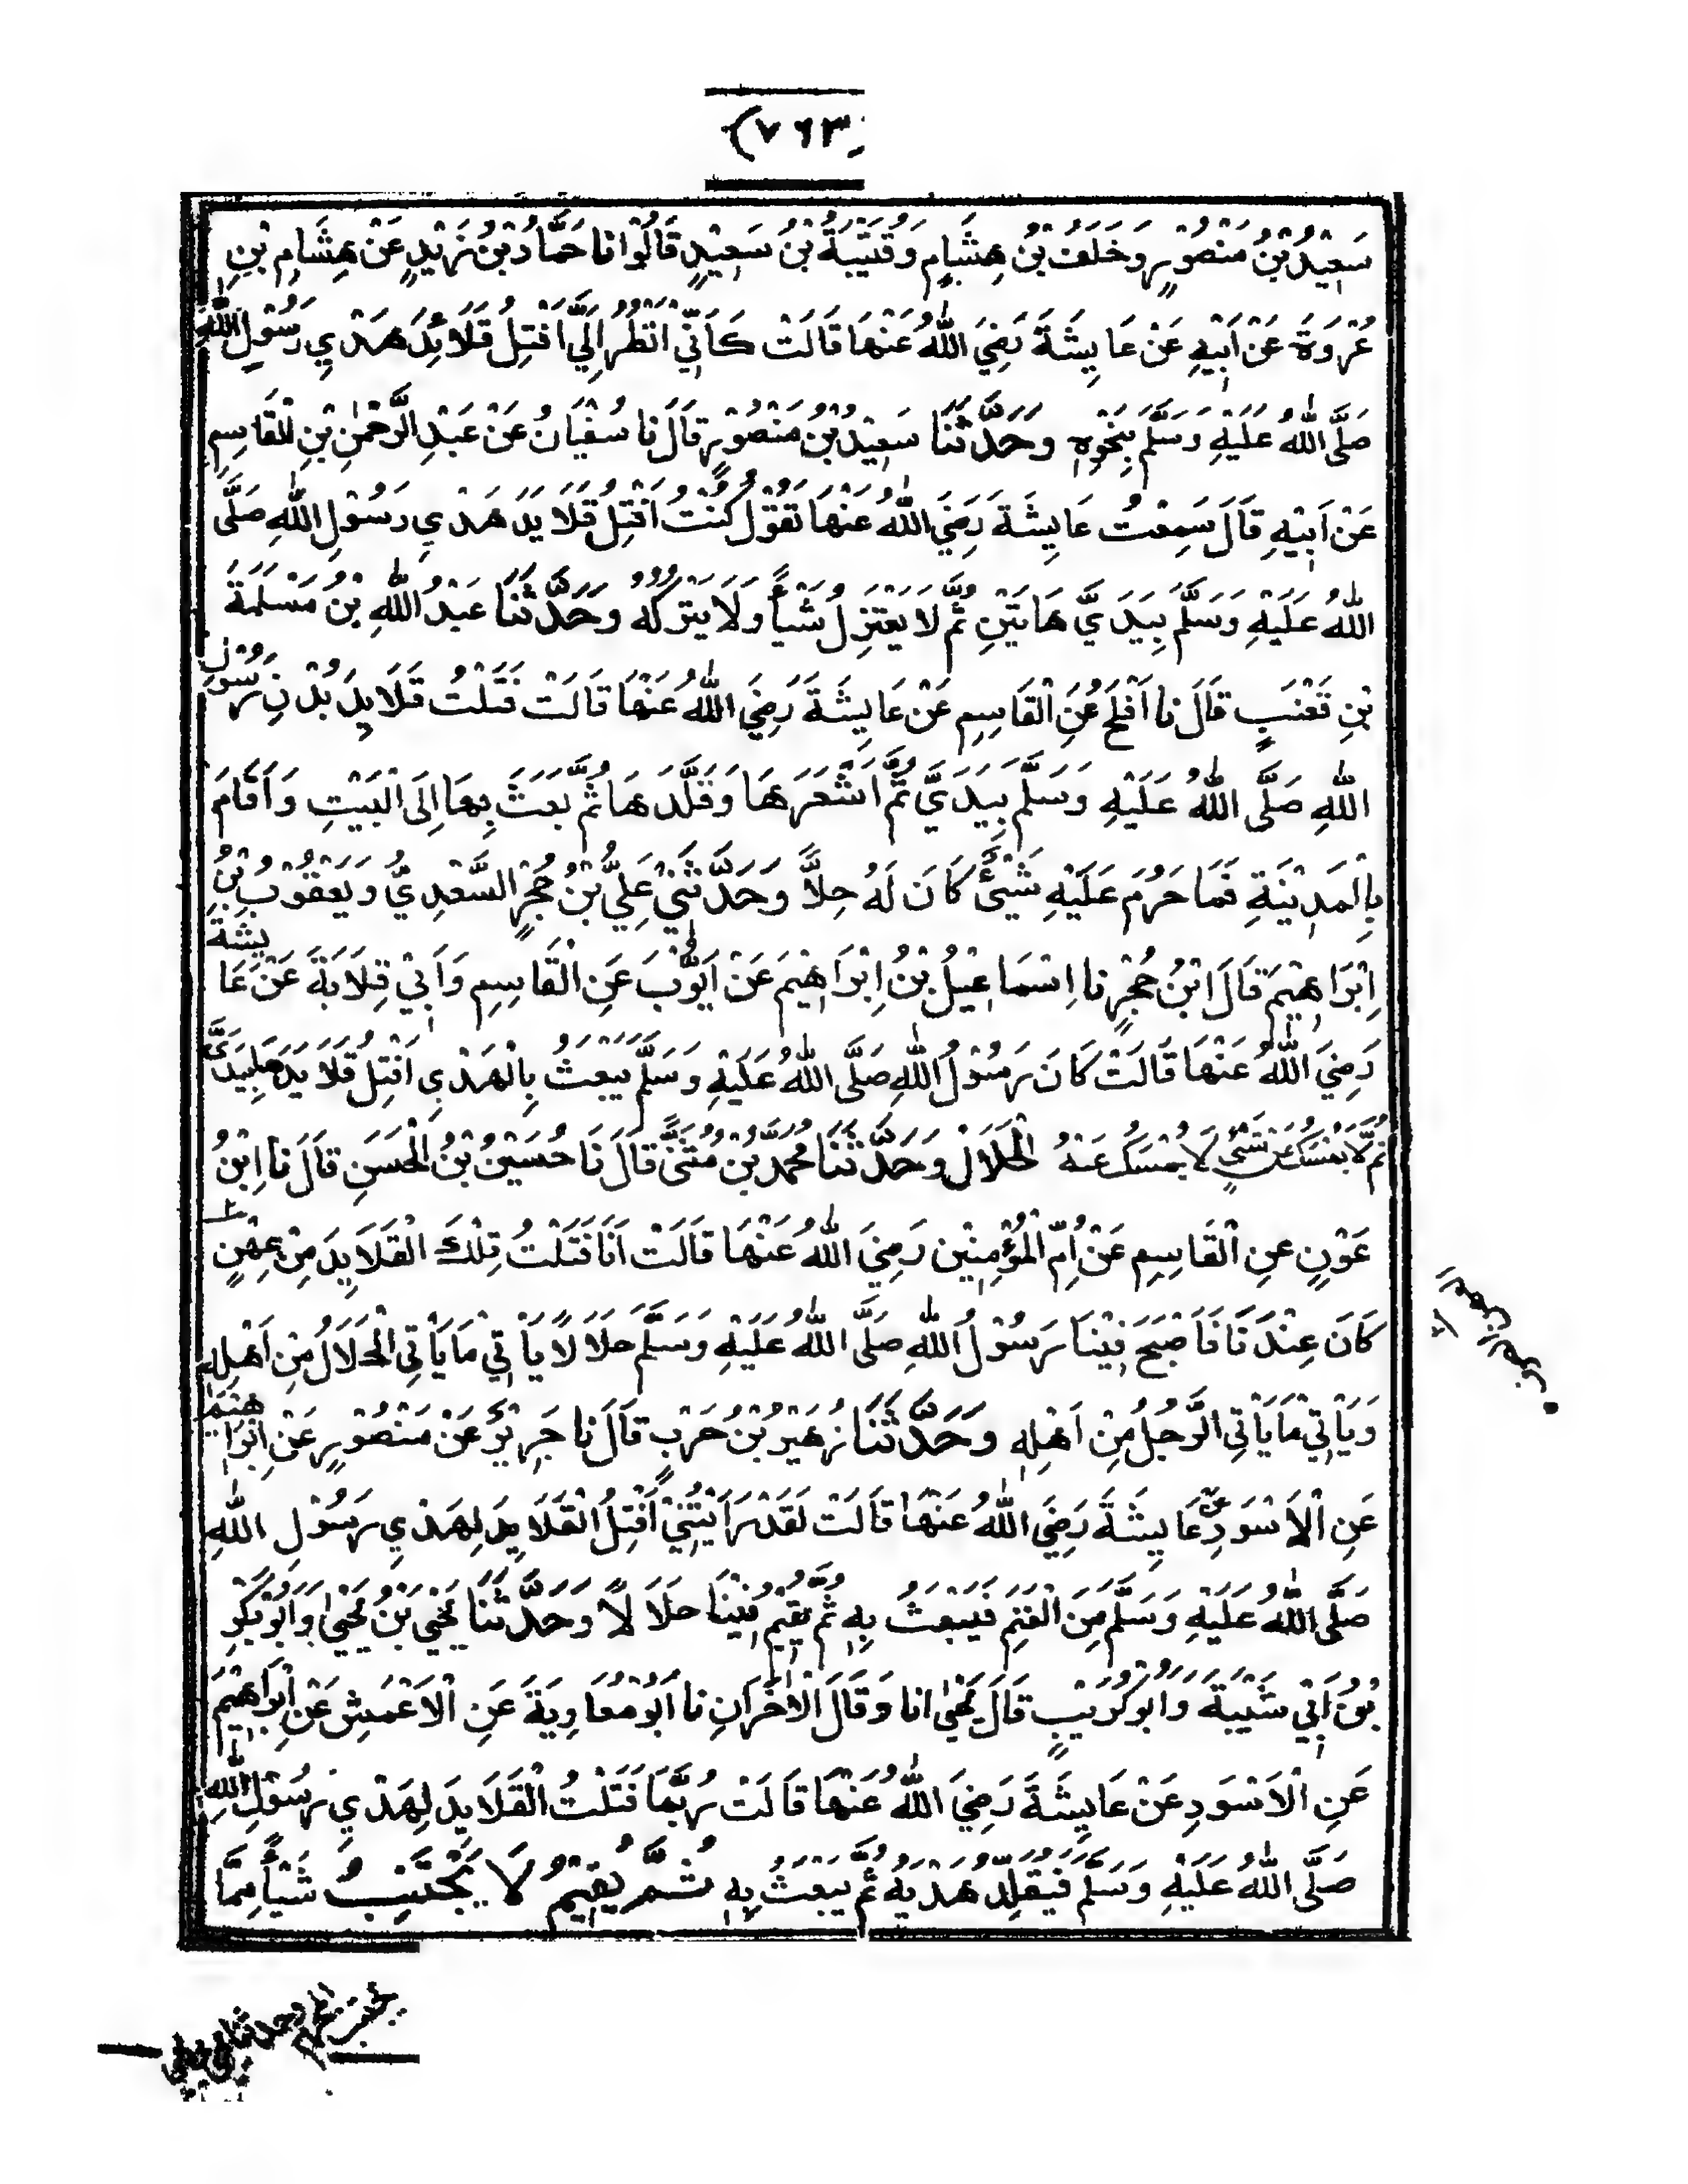 (٧٦٣)
سَعِيْدُ بْنُ مَنْصُوْرٍ وَخَلَفُ بْنُ هِشَامٍ وَقُتَيْبَةُ بْنُ سَعِيْدٍ قَالُوْا نا حَمَّادُ بْنُ زَيْدٍ عَنْ هِشَامِ بْنِ
عُرْوَةَ عَنْ اَبِيْهِ عَنْ عَايِشَةَ رَضِيَ اللّٰهُ عَنْهَا قَالَتْ كَاَنِّيْ اَنْظُرُ اِلَيَّ اَفْتِلُ قَلَائِدَ هَدْيِ رَسُوْلِ اللّٰهِ
صَلَّى اللّٰهُ عَلَيْهِ وَسَلَّمَ بِنَحْوِهٖ وَحَدَّثَنَا سَعِيْدُ بْنُ مَنْصُوْرٍ قَالَ نا سُفْيَانُ عَنْ عَبْدِ الرَّحْمٰنِ بْنِ الْقَاسِمِ
عَنْ اَبِيْهِ قَالَ سَمِعْتُ عَايِشَةَ رَضِيَ اللّٰهُ عَنْهَا تَقُوْلُ كُنْتُ اَفْتِلُ قَلَايِدَ هَدْيِ رَسُوْلِ اللّٰهِ صَلَّى
اللّٰهُ عَلَيْهِ وَسَلَّمَ بِيَدَيَّ هَاتَيْنِ ثُمَّ لَا يَعْتَزِلُ شَيْأً وَلَا يَتْرُكُهُ وَحَدَّثَنَا عَبْدُ اللّٰهِ بْنُ مَسْلَمَةَ
بْنِ قَعْنَبٍ قَالَ نا اَفْلَحُ عَنِ الْقَاسِمِ عَنْ عَايِشَةَ رَضِيَ اللّٰهُ عَنْهَا قَالَتْ فَتَلْتُ قَلَايِدَ بُدْنِ رَسُوْلِ
اللّٰهِ صَلَّى اللّٰهُ عَلَيْهِ وَسَلَّمَ بِيَدَيَّ ثُمَّ اَشْعَرَهَا وَقَلَّدَهَا ثُمَّ بَعَثَ بِهَا اِلَى الْبَيْتِ وَاَقَامَ
بِالْمَدِيْنَةِ فَمَا حَرُمَ عَلَيْهِ شَيْئٌ كَانَ لَهُ حِلًّا وَحَدَّثَنِيْ عَلِيُّ بْنُ حُجْرٍ السَّعْدِيُّ وَيَعْقُوْبُ بْنُ
اِبْرَاهِيْمَ قَالَ ابْنُ حُجْرٍ نا اِسْمَاعِيْلُ بْنُ اِبْرَاهِيْمَ عَنْ اَيُّوْبَ عَنِ الْقَاسِمِ وَاَبِيْ قِلَابَةَ عَنْ عَايِشَةَ
رَضِيَ اللّٰهُ عَنْهَا قَالَتْ كَانَ رَسُوْلُ اللّٰهِ صَلَّى اللّٰهُ عَلَيْهِ وَسَلَّمَ يَبْعَثُ بِالْهَدْيِ اَفْتِلُ قَلَايِدَهَا بِيَدَيَّ
ثُمَّ لَا يُمْسِكُ عَنْ شَيْئٍ لَا يُمْسِكُ عَنْهُ الْحَلَالُ وَحَدَّثَنَا مُحَمَّدُ بْنُ مُثَنًّى قَالَ نَا حُسَيْنُ بْنُ الْحَسَنِ قَالَ نا ابْنُ
عَوْنٍ عَنِ الْقَاسِمِ عَنْ اُمِّ الْمُؤْمِنِيْنَ رَضِيَ اللّٰهُ عَنْهَا قَالَتْ اَنَا فَتَلْتُ تِلْكَ الْقَلَايِدَ مِنْ عِهْنٍ
كَانَ عِنْدَنَا فَاَصْبَحَ فِيْنَا رَسُوْلُ اللّٰهِ صَلَّى اللّٰهُ عَلَيْهِ وَسَلَّمَ حَلَالًا يَاْتِيْ مَا يَاْتِى الْحَلَالُ مِنْ اَهْلِهٖ
وَيَاْتِيْ مَا يَاْتِى الرَّجُلُ مِنْ اَهْلِهٖ وَحَدَّثَنَا زُهَيْرُ بْنُ حَرْبٍ قَالَ نا جَرِيْرٌ عَنْ مَنْصُوْرٍ عَنْ اِبْرَاهِيْمَ
عَنِ الْاَسْوَدِ عَنْ عَايِشَةَ رَضِيَ اللّٰهُ عَنْهَا قَالَتْ لَقَدْ رَاَيْتُنِيْ اَفْتِلُ الْقَلَايِدَ لِهَدْيِ رَسُوْلِ اللّٰهِ
صَلَّى اللّٰهُ عَلَيْهِ وَسَلَّمَ مِنَ الْغَنَمِ فَيَبْعَثُ بِهٖ ثُمَّ يُقِيْمُ فِيْنَا حَلَالًا وَحَدَّثَنَا يَحْيَى بْنُ يَحْيٰى وَاَبُوْ بَكْرِ
بْنُ اَبِيْ شَيْبَةَ وَاَبُوْ كُرَيْبٍ قَالَ يَحْيٰى انا وَقَالَ الْاٰخَرَانِ نا اَبُوْ مُعَاوِيَةَ عَنِ الْاَعْمَشِ عَنْ اِبْرَاهِيْمَ
عَنِ الْاَسْوَدِ عَنْ عَايِشَةَ رَضِيَ اللّٰهُ عَنْهَا قَالَتْ رُبَّمَا فَتَلْتُ الْقَلَايِدَ لِهَدْيِ رَسُوْلِ اللّٰهِ
صَلَّى اللّٰهُ عَلَيْهِ وَسَلَّمَ فَيُقَلِّدُ هَدْيَهُ ثُمَّ يَبْعَثُ بِهٖ ثُمَّ يُقِيْمُ لَا يَجْتَنِبُ شَيْأً مِمَّا